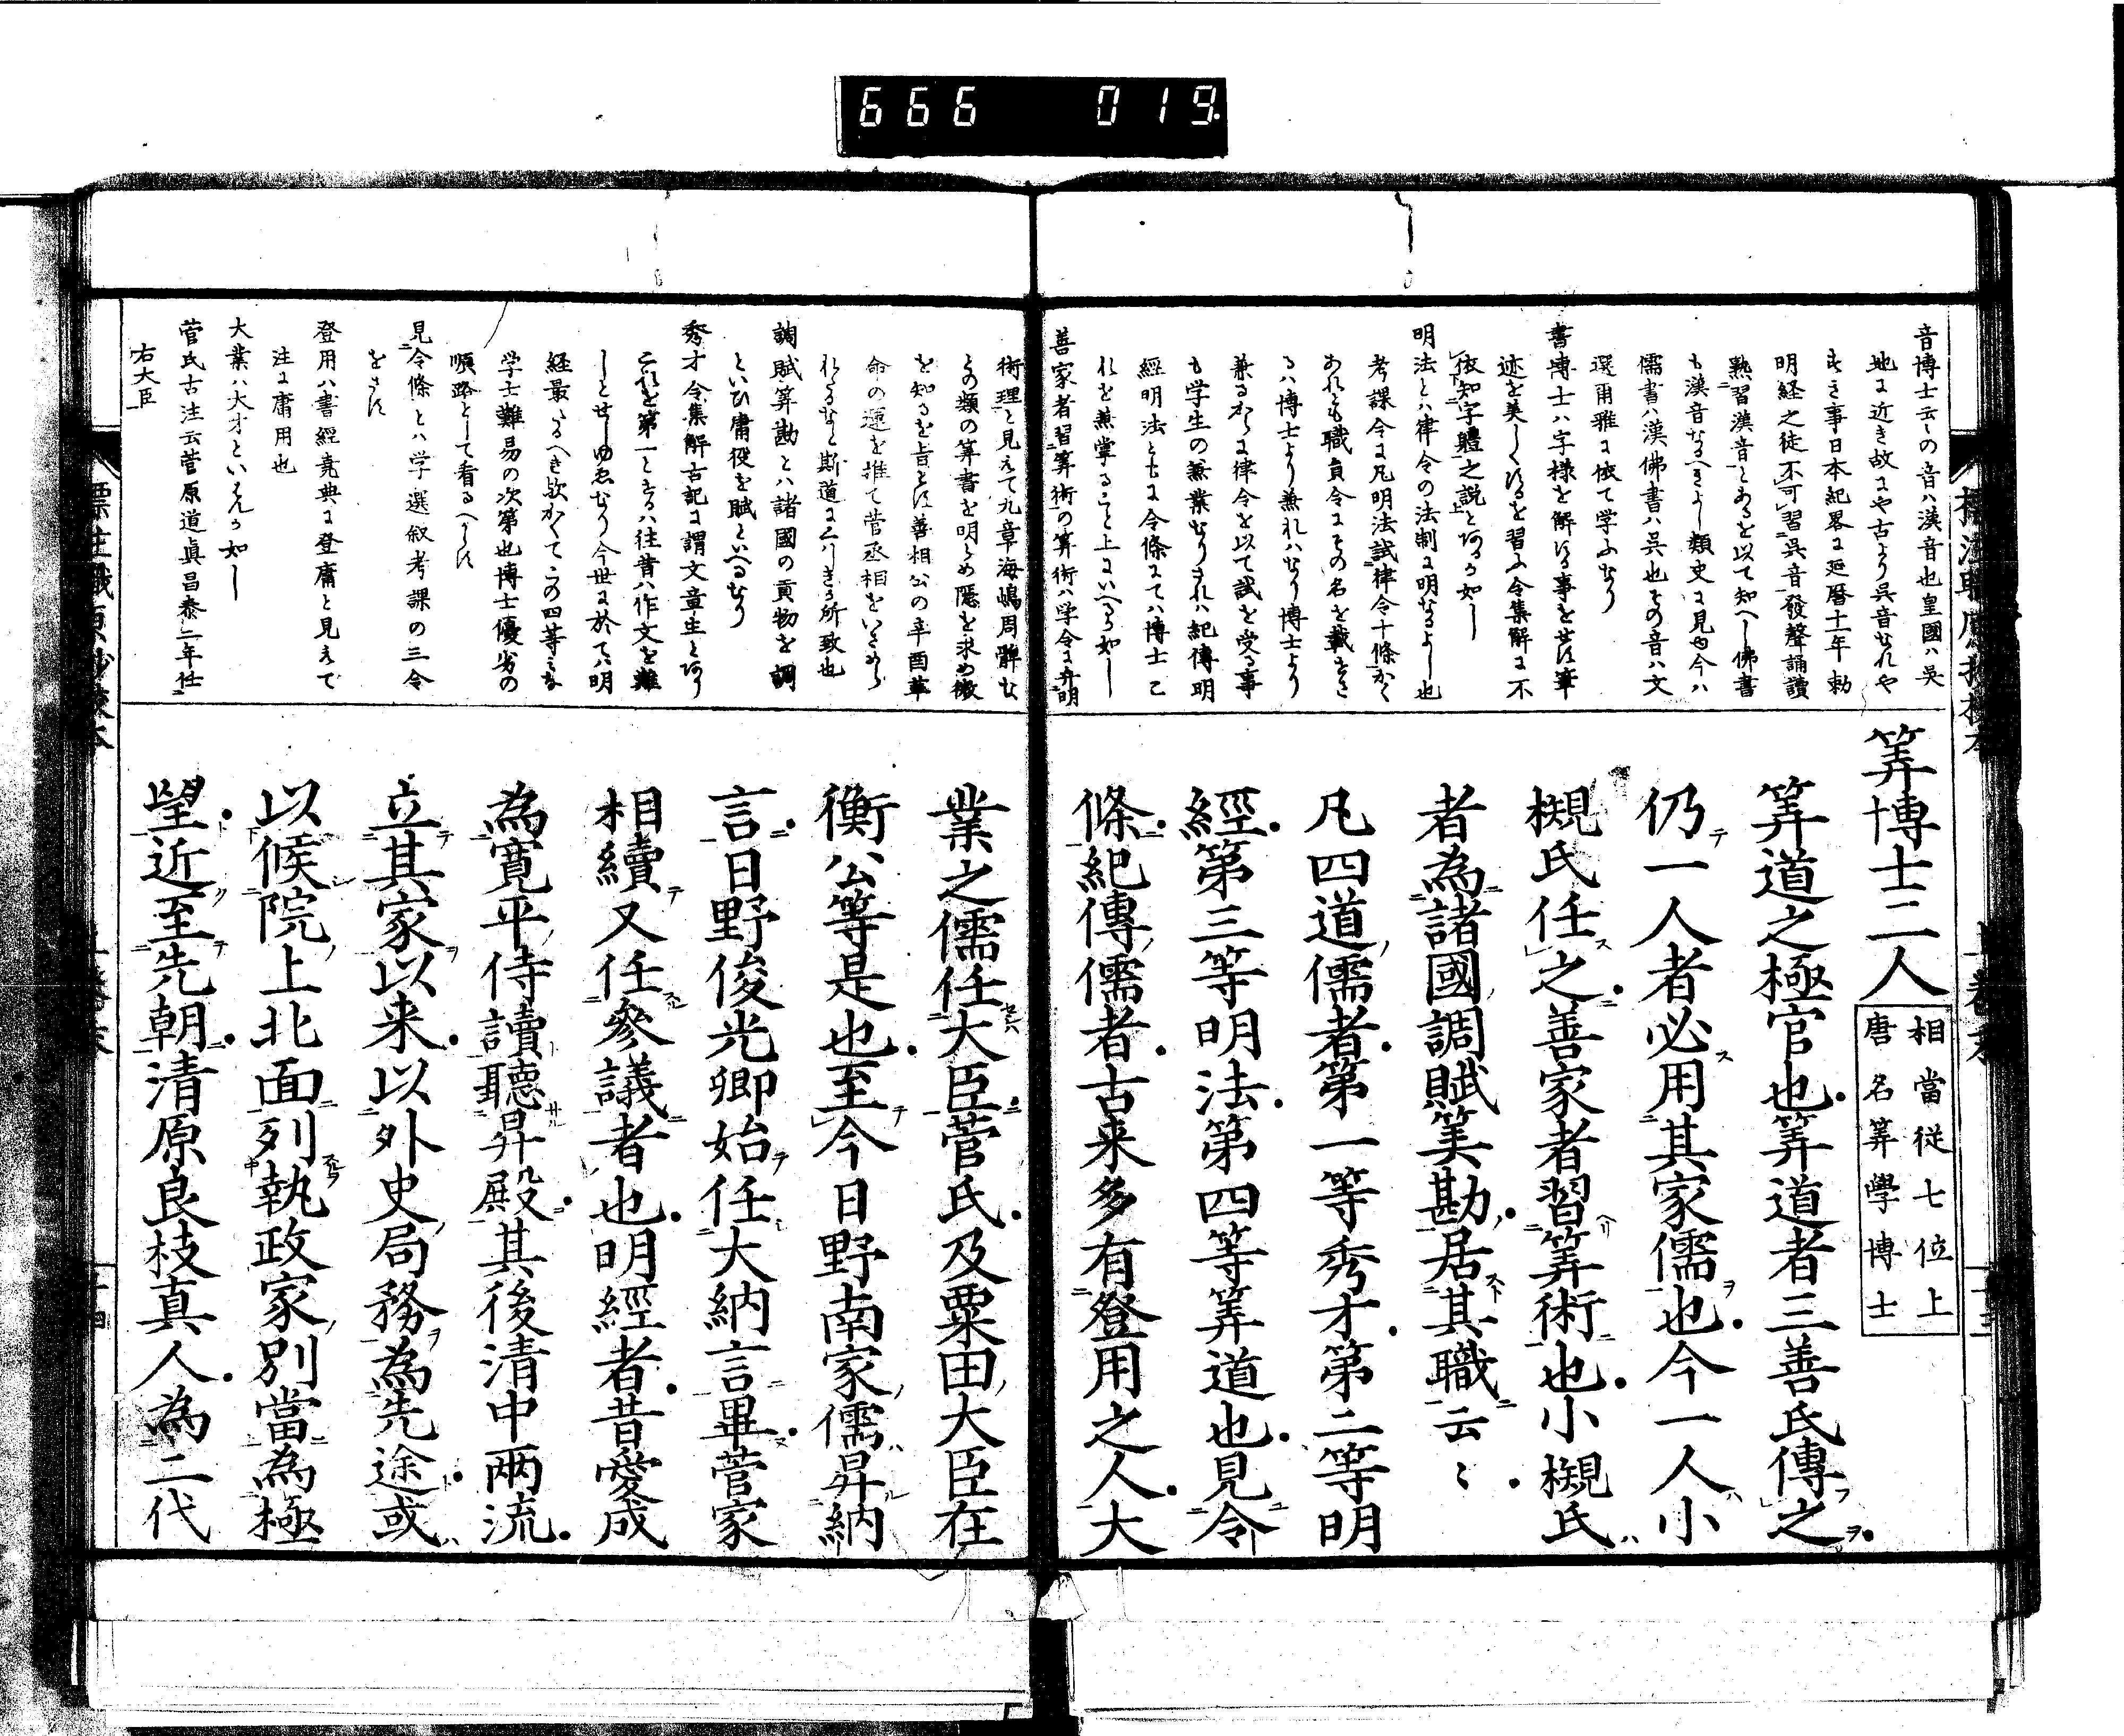 666 019.
算博士二人
相當従七位上
唐名算學博士
算道之極官也算道者三善氏傳之
仍一人者必用其家儒也今一人小
槻氏任之善家者習算術也小槻氏
者為諸國調賦算勘居其職云〻
凡四道儒者第一等秀才第二等明
經第三等明法第四等算道也見令
條紀傳儒者古来多有登用之人大
業之儒任大臣菅氏及粟田大臣在
衡公等是也至今日野南家儒昇納
言日野俊光卿始任大納言畢菅家
相續又任參議者也明經者昔愛成
為寛平侍讀聽昇殿其後清中兩流
立其家以来以外史局務為先途或
以候院上北面列執政家別當為極
望近至先朝清原良枝真人為二代
音博士云〻の音ハ漢音也皇國ハ吳
地に近き故にや古より吳音なれや
すき事日本紀畧に延暦十一年勅
明経之徒不可習吳音發聲誦讀
熟習漢音とあるを以て知へし佛書
も漢音なるへきよし類史に見ゆ今ハ
儒書ハ漢佛書ハ吳也その音ハ文
選爾雅に依て学ふなり
書博士ハ字様を解する事をせす筆
迹を美しくするを習ふ令集解に不
依知字體之説とあるか如し
明法とハ律令の法制に明なるよし也
考課令に凡明法試律令十條かく
あれとも職員令にその名を載せさ
るハ博士より兼れハなり博士より
兼るからに律令を以て試を受る事
も学生の兼業なりされハ紀傳明
經明法ともに令條にてハ博士一己
れを兼掌ること上にいへるか如し
善家者習算術の算術ハ学令に弁明
術理と見えて九章海嶋周髀な
との類の算書を明らめ隠を求め微
を知るを旨とす善相公の辛酉革
命の運を推て菅丞相をいさめら
れたるなと斯道にくハしきか所致也
調賦算勘とハ諸國の貢物を調
といひ庸役を賦といへるなり
秀才令集解古記に謂文章生とあり
これを第一とするハ往昔ハ作文を難
しとせしゆゑなり今世に於てハ明
経最たるへき歟かくてこの四等ミな
学士難易の次第也博士優劣の
順路として看るへからす
見令條とハ学選叙考課の三令
をさす
登用ハ書經堯典に登庸と見えて
注に庸用也
大業ハ大才といはんか如し
菅氏古注云菅原道眞昌泰二年任
右大臣